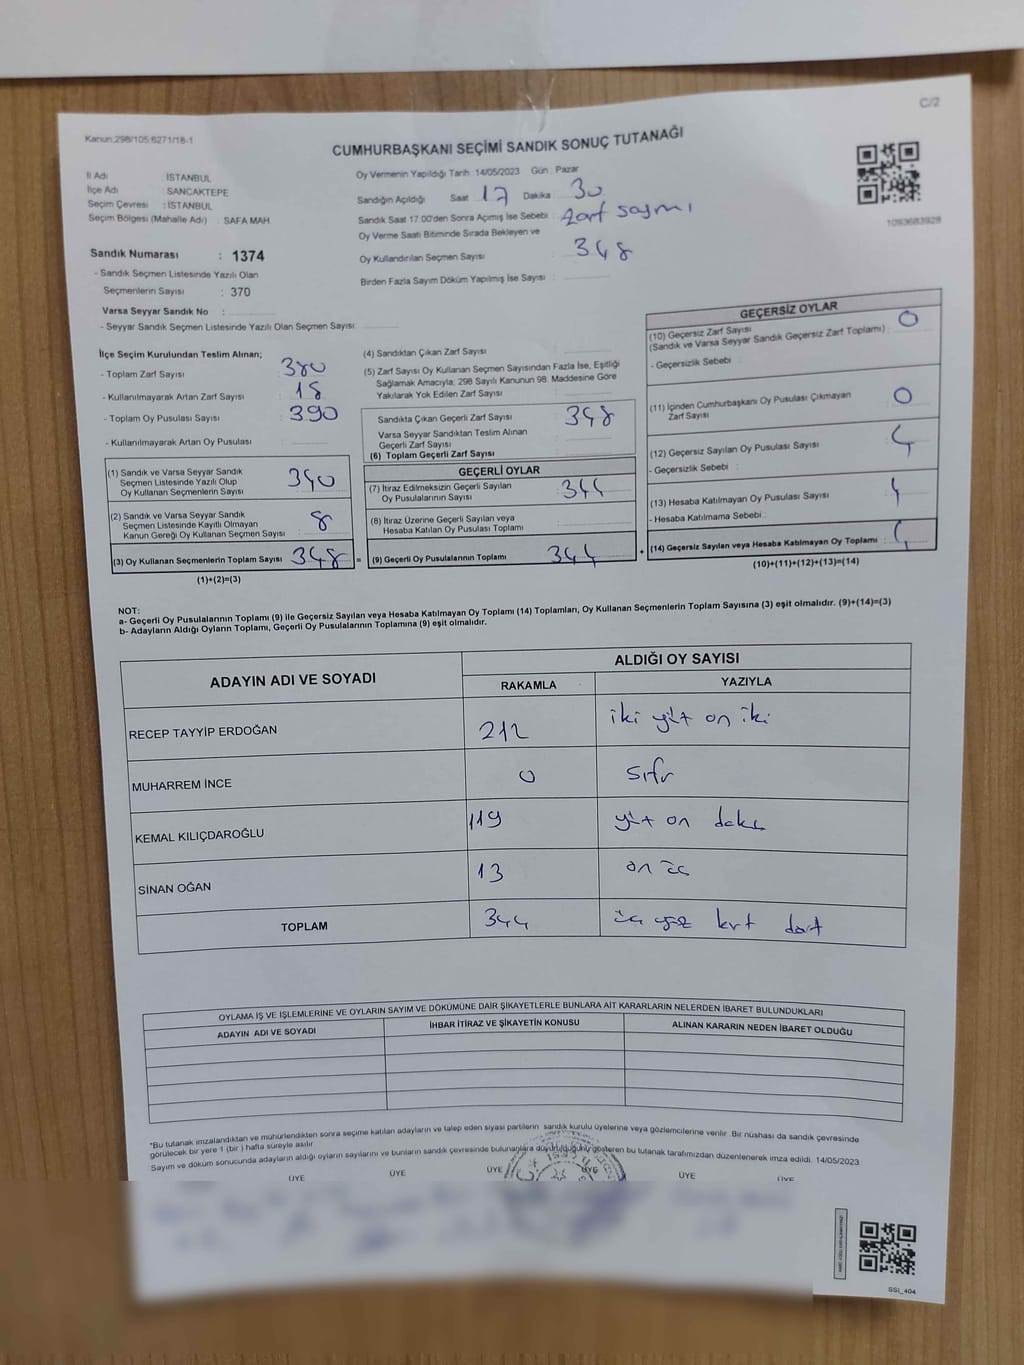 C/2
Kanun;298/105;6271/18-1
CUMHURBAŞKANI SEÇİMİ SANDIK SONUÇ TUTANAĞI
İl Adı : İSTANBUL
İlçe Adı : SANCAKTEPE
Seçim Çevresi : İSTANBUL
Seçim Bölgesi (Mahalle Adı) : SAFA MAH
Sandık Numarası : 1374
- Sandık Seçmen Listesinde Yazılı Olan
Seçmenlerin Sayısı : 370
Varsa Seyyar Sandık No :
- Seyyar Sandık Seçmen Listesinde Yazılı Olan Seçmen Sayısı:
Oy Vermenin Yapıldığı Tarih : 14/05/2023 Gün : Pazar
Sandığın Açıldığı Saat 17 Dakika : 30
Sandık Saat 17.00'den Sonra Açımış İse Sebebi : Zarf sayımı
Oy Verme Saati Bitiminde Sırada Bekleyen ve
Oy Kullandırılan Seçmen Sayısı : 348
Birden Fazla Sayım Döküm Yapılmış İse Sayısı :
1093683928
İlçe Seçim Kurulundan Teslim Alınan;
- Toplam Zarf Sayısı : 380
- Kullanılmayarak Artan Zarf Sayısı : 18
- Toplam Oy Pusulası Sayısı : 390
- Kullanılmayarak Artan Oy Pusulası :
(1) Sandık ve Varsa Seyyar Sandık
Seçmen Listesinde Yazılı Olup
Oy Kullanan Seçmenlerin Sayısı : 340
(2) Sandık ve Varsa Seyyar Sandık
Seçmen Listesinde Kayıtlı Olmayan
Kanun Gereği Oy Kullanan Seçmen Sayısı : 8
(3) Oy Kullanan Seçmenlerin Toplam Sayısı : 348
(1)+(2)=(3)
(4) Sandıktan Çıkan Zarf Sayısı :
(5) Zarf Sayısı Oy Kullanan Seçmen Sayısından Fazla İse, Eşitliği
Sağlamak Amacıyla; 298 Sayılı Kanunun 98. Maddesine Göre
Yakılarak Yok Edilen Zarf Sayısı :
Sandıkta Çıkan Geçerli Zarf Sayısı : 348
Varsa Seyyar Sandıktan Teslim Alınan
Geçerli Zarf Sayısı :
(6) Toplam Geçerli Zarf Sayısı :
GEÇERLİ OYLAR
(7) İtiraz Edilmeksizin Geçerli Sayılan
Oy Pusulalarının Sayısı : 344
(8) İtiraz Üzerine Geçerli Sayılan veya
Hesaba Katılan Oy Pusulası Toplamı :
= (9) Geçerli Oy Pusulalarının Toplamı : 344 +
GEÇERSİZ OYLAR
(10) Geçersiz Zarf Sayısı
(Sandık ve Varsa Seyyar Sandık Geçersiz Zarf Toplamı) : 0
- Geçersizlik Sebebi :
(11) İçinden Cumhurbaşkanı Oy Pusulası Çıkmayan
Zarf Sayısı : 0
(12) Geçersiz Sayılan Oy Pusulası Sayısı : 4
- Geçersizlik Sebebi :
(13) Hesaba Katılmayan Oy Pusulası Sayısı :
- Hesaba Katılmama Sebebi :
(14) Geçersiz Sayılan veya Hesaba Katılmayan Oy Toplamı :
(10)+(11)+(12)+(13)=(14)
NOT:
a- Geçerli Oy Pusulalarının Toplamı (9) ile Geçersiz Sayılan veya Hesaba Katılmayan Oy Toplamı (14) Toplamları, Oy Kullanan Seçmenlerin Toplam Sayısına (3) eşit olmalıdır. (9)+(14)=(3)
b- Adayların Aldığı Oyların Toplamı, Geçerli Oy Pusulalarının Toplamına (9) eşit olmalıdır.
ADAYIN ADI VE SOYADI
ALDIĞI OY SAYISI
RAKAMLA YAZIYLA
RECEP TAYYİP ERDOĞAN 212 iki yüz on iki
MUHARREM İNCE 0 sıfır
KEMAL KILIÇDAROĞLU 119 yüz on dokuz
SİNAN OĞAN 13 on üç
TOPLAM 344 üç yüz kırk dört
OYLAMA İŞ VE İŞLEMLERİNE VE OYLARIN SAYIM VE DÖKÜMÜNE DAİR ŞİKAYETLERLE BUNLARA AİT KARARLARIN NELERDEN İBARET BULUNDUKLARI
ADAYIN ADI VE SOYADI İHBAR İTİRAZ VE ŞİKAYETİN KONUSU ALINAN KARARIN NEDEN İBARET OLDUĞU
*Bu tutanak imzalandıktan ve mühürlendikten sonra seçime katılan adayların ve talep eden siyasi partilerin sandık kurulu üyelerine veya gözlemcilerine verilir. Bir nüshası da sandık çevresinde
görülecek bir yere 1 (bir ) hafta süreyle asılır.
Sayım ve döküm sonucunda adayların aldığı oyların sayılarını ve bunların sandık çevresinde bulunanlara duyurulduğunu gösteren bu tutanak tarafımızdan düzenlenerek imza edildi. 14/05/2023
ÜYE ÜYE ÜYE ÜYE ÜYE ÜYE
SSI_404